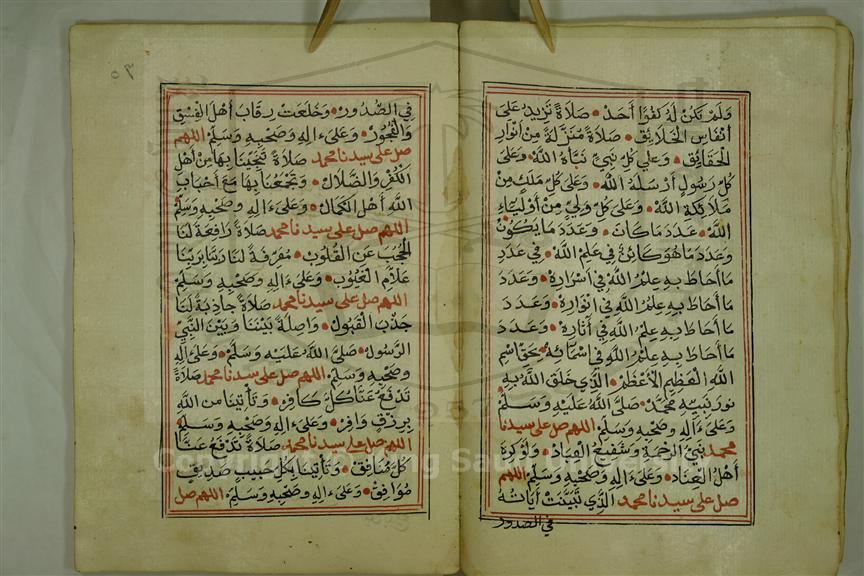 وَلَمْ يَكُنْ لَهُ كُفُوًا اَحَدٌ صَلَاةً تَزِيدُ عَلَى
اَنْفَاسِ الْخَلَائِقِ صَلَاةً مُنَزَّلَةً مِنْ اَنْوَارِ
الْحَقَائِقِ وَعَلَى كُلِّ نَبِيٍّ نَبَّأَهُ اللَّهُ وَعَلَى
كُلِّ رَسُولٍ اَرْسَلَهُ اللَّهُ وَعَلَى كُلِّ مَلَكٍ مِنْ
مَلَائِكَةِ اللَّهِ وَعَلَى كُلِّ وَلِيٍّ مِنْ اَوْلِيَاءِ
اللَّهِ عَدَدَ مَا كَانَ وَعَدَدَ مَا يَكُوْنُ
وَعَدَدَ مَا هُوَ كَائِنٌ فِي عِلْمِ اللَّهِ فِي عَدَدِ
مَا اَحَاطَ بِهِ عِلْمُ اللَّهِ فِي اَسْرَارِهِ وَعَدَدَ
مَا اَحَاطَ بِهِ عِلْمُ اللَّهِ فِي اَنْوَارِهِ وَعَدَدَ
مَا اَحَاطَ بِهِ عِلْمُ اللَّهِ فِي اٰثَارِهِ وَعَدَدَ
مَا اَحَاطَ بِهِ عِلْمُ اللَّهِ فِي اَسْمَائِهِ بِحَقِّ اسْمِ
اللَّهِ الْعَظِيْمِ الْاَعْظَمِ الَّذِي خَلَقَ اللَّهُ بِهِ
نُورَ نَبِيِّهِ مُحَمَّدٍ صَلَّى اللَّهُ عَلَيْهِ وَسَلَّمَ
وَعَلَى ءَالِهِ وَصَحْبِهِ وَسَلِّمْ اللهم صل على سيدنا
محمد نَبِيِّ الرَّحْمَةِ وَشَفِيعِ الْعِبَادِ وَلَوْ كَرِهَ
اَهْلُ الْعِنَادِ وَعَلَى ءَالِهِ وَصَحْبِهِ وَسَلِّمْ اللهم
صل على سيدنا محمد الَّذِي تَبَيَّنَتْ اٰيَاتُهُ
في الصدور
٣٥
فِي الصُّدُورِ وَخَلَعَتْ رِقَابَ اَهْلِ الْفِسْقِ
وَالْفُجُورِ وَعَلَى ءَالِهِ وَصَحْبِهِ وَسَلِّمْ اللهم
صل على سيدنا محمد صَلَاةً تُنَجِّيْنَا بِهَا مِنْ اَهْلِ
الْكُفْرِ وَالضَّلَالِ وَتَجْمَعُنَا بِهَا مَعَ اَحْبَابِ
اللَّهِ اَهْلِ الْكَمَالِ وَعَلَى ءَالِهِ وَصَحْبِهِ وَسَلِّمْ
اللهم صل على سيدنا محمد صَلَاةً رَافِعَةً لَنَا
الْحُجُبَ عَنِ الْقُلُوبِ مُعَرِّفَةً لَنَا رَبَّنَا بَرِيئَنَا
عَلَّامَ الْغُيُوبِ وَعَلَى ءَالِهِ وَصَحْبِهِ وَسَلِّمْ
اللهم صل على سيدنا محمد صَلَاةً جَاذِبَةً لَنَا
جَذْبَ الْقَبُولِ وَاصِلَةً بَيْنَنَا وَبَيْنَ النَّبِيِّ
الرَّسُولِ صَلَّى اللَّهُ عَلَيْهِ وَسَلَّمَ وَعَلَى ءَالِهِ
وَصَحْبِهِ وَسَلِّمْ اللهم صل على سيدنا محمد صَلَاةً
تَدْفَعُ عَنَّا كُلَّ كَافِرٍ وَتَأْتِيْنَا مِنَ اللَّهِ
بِرِزْقٍ وَافِرٍ وَعَلَى ءَالِهِ وَصَحْبِهِ وَسَلِّمْ
اللهم صل على سيدنا محمد صَلَاةً تَدْفَعُ عَنَّا
كُلَّ مُنَافِقٍ وَتَأْتِيْنَا بِكُلِّ حَبِيبٍ صَدِيقٍ
مُوَافِقٍ وَعَلَى ءَالِهِ وَصَحْبِهِ وَسَلِّمْ اللهم صل